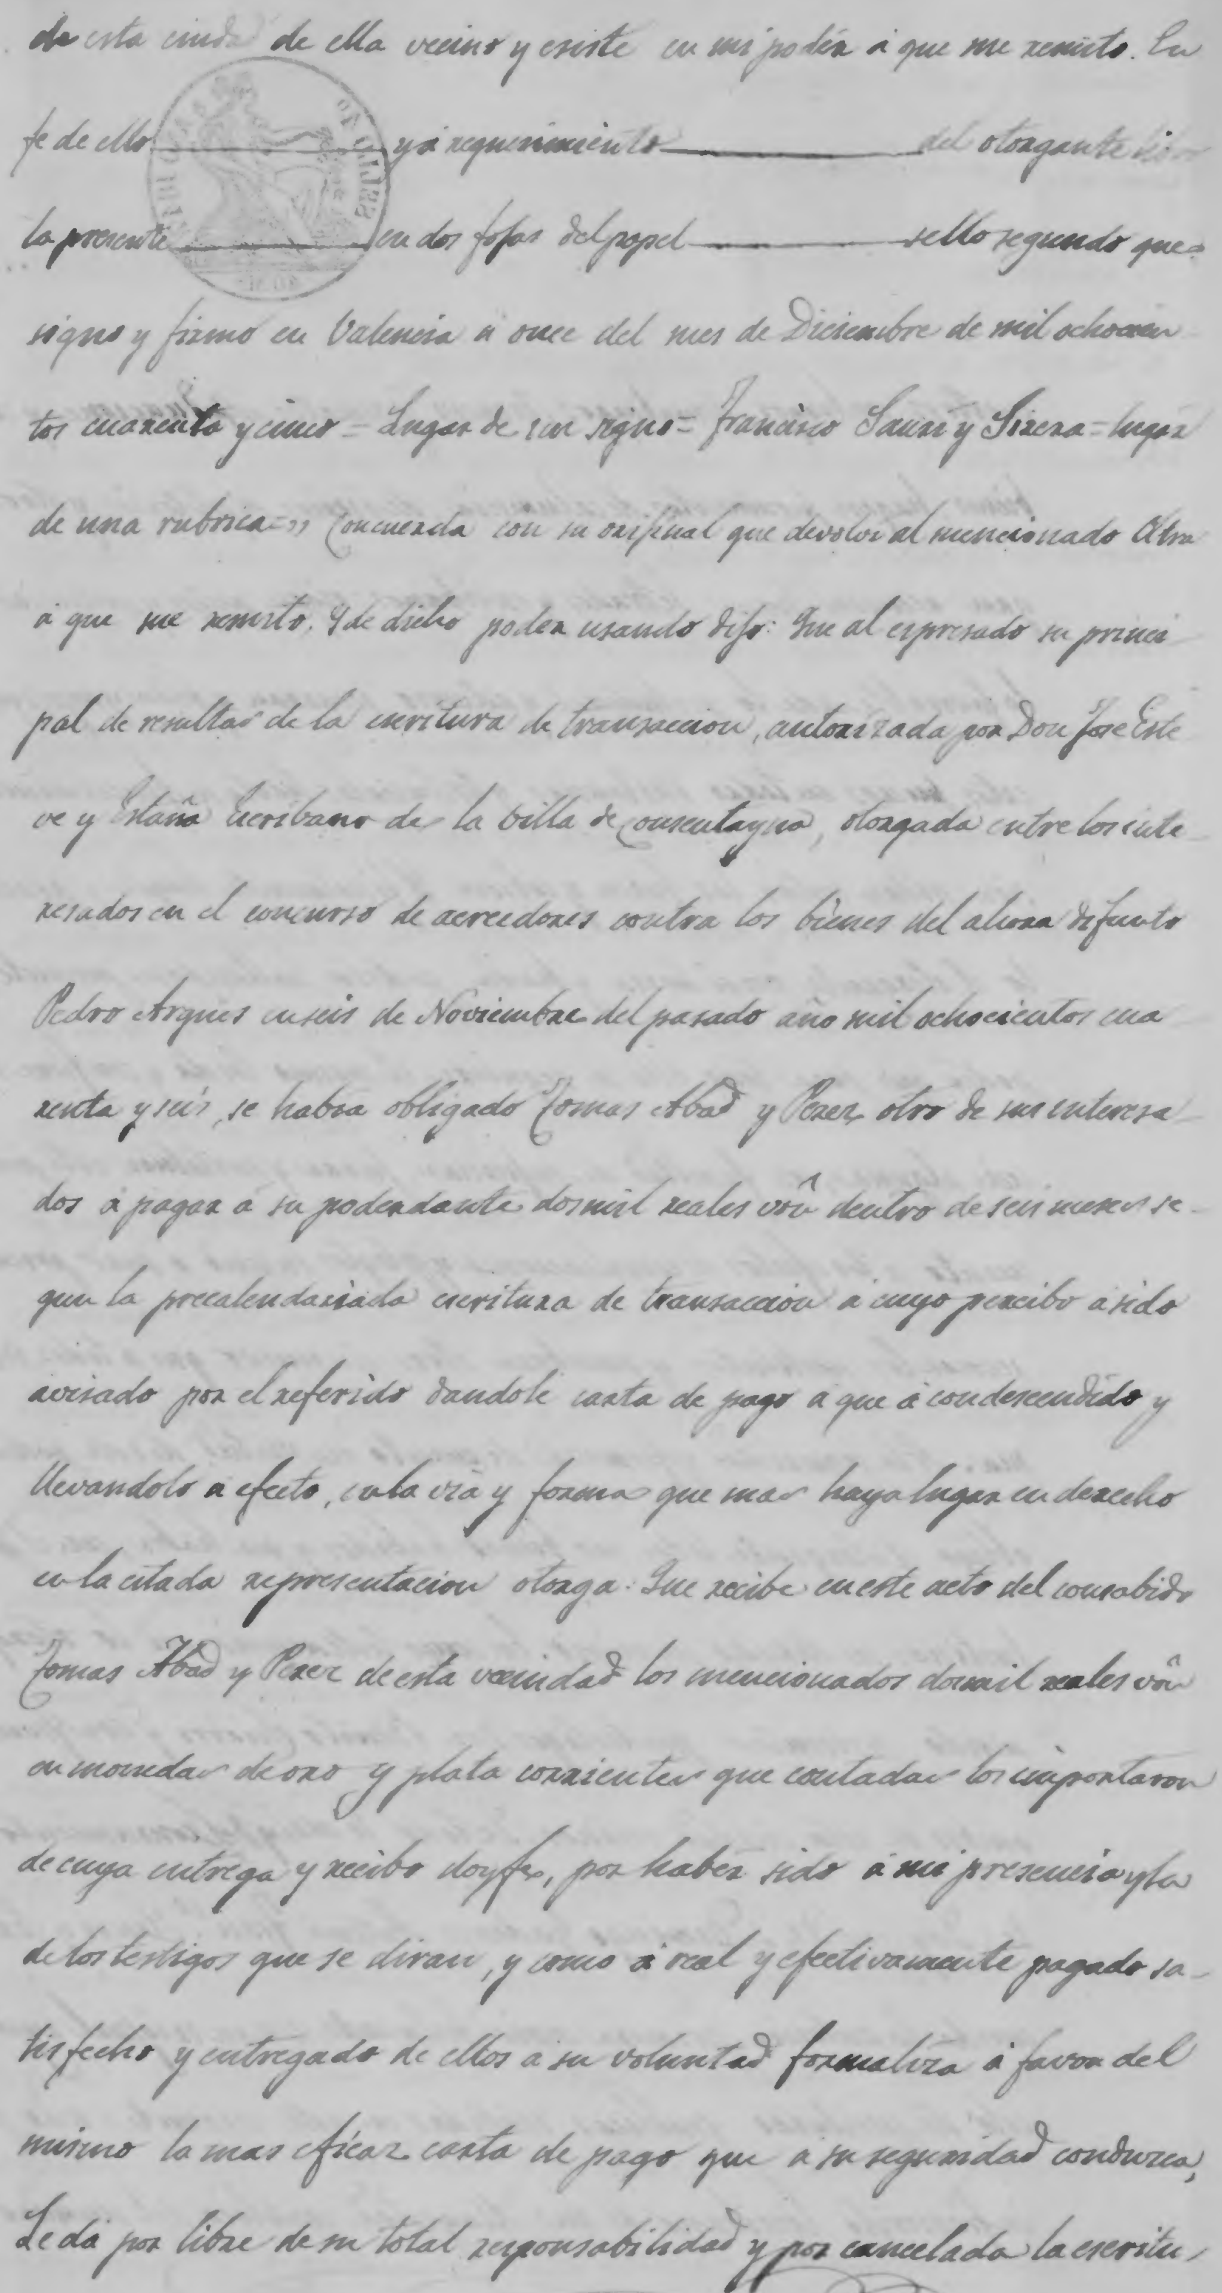 de esta ciudad de ella vecino y existe en mi poder á que me remito. En
fe de ello y á requerimiento del otorgante libro
la presente en dos fojas del papel sello segundo que
signo y firmo en Valencia á once del mes de Diciembre de mil ochocien
tos cuarenta y cinco = Lugar de un signo = Francisco Sauri y Sirera = lugar
de una rubrica = " Concuerda con su original que devolví al mencionado
á que me remito. Y de dicho poder usando dijo: Que al espresado su princi
pal de resultas de la escritura de transaccion, autorizada por Don Jose Este
ve y Estaña Escribano de la villa de Consentayna, otorgada entre los inte
resados en el concurso de acreedores contra los bienes del ahora difunto
Pedro Arques en seis de Noviembre del pasado año mil ochocientos cua
renta y seis, se habia obligado Tomas Abad y Perez otro de sus interesa
dos á pagar á su poderdante dos mil reales von dentro de seis meses se-
gun la precalendariada escritura de transaccion á cuyo percibo á sido
avisado por el referido dandole carta de pago á que á condescendido y
llevandolo á efecto, en la via y forma que mas haya lugar en derecho
en la citada representacion otorga: Que recibe en este acto del consabido
Tomas Abad y Perez de esta vecindad los mencionados dos mil reales von
en monedas de oro y plata corrientes que contadas los importaron
de cuya entrega y recibo doy fe, por haber sido á mi presencia y la
de los testigos que se diran, y como á real y efectivamente pagado sa-
tisfecho y entregado de ellos á su voluntad formaliza á favor del
mismo la mas eficaz carta de pago que á su seguridad conduzca,
Le dá por libre de su total responsabilidad y por cancelada la escritu